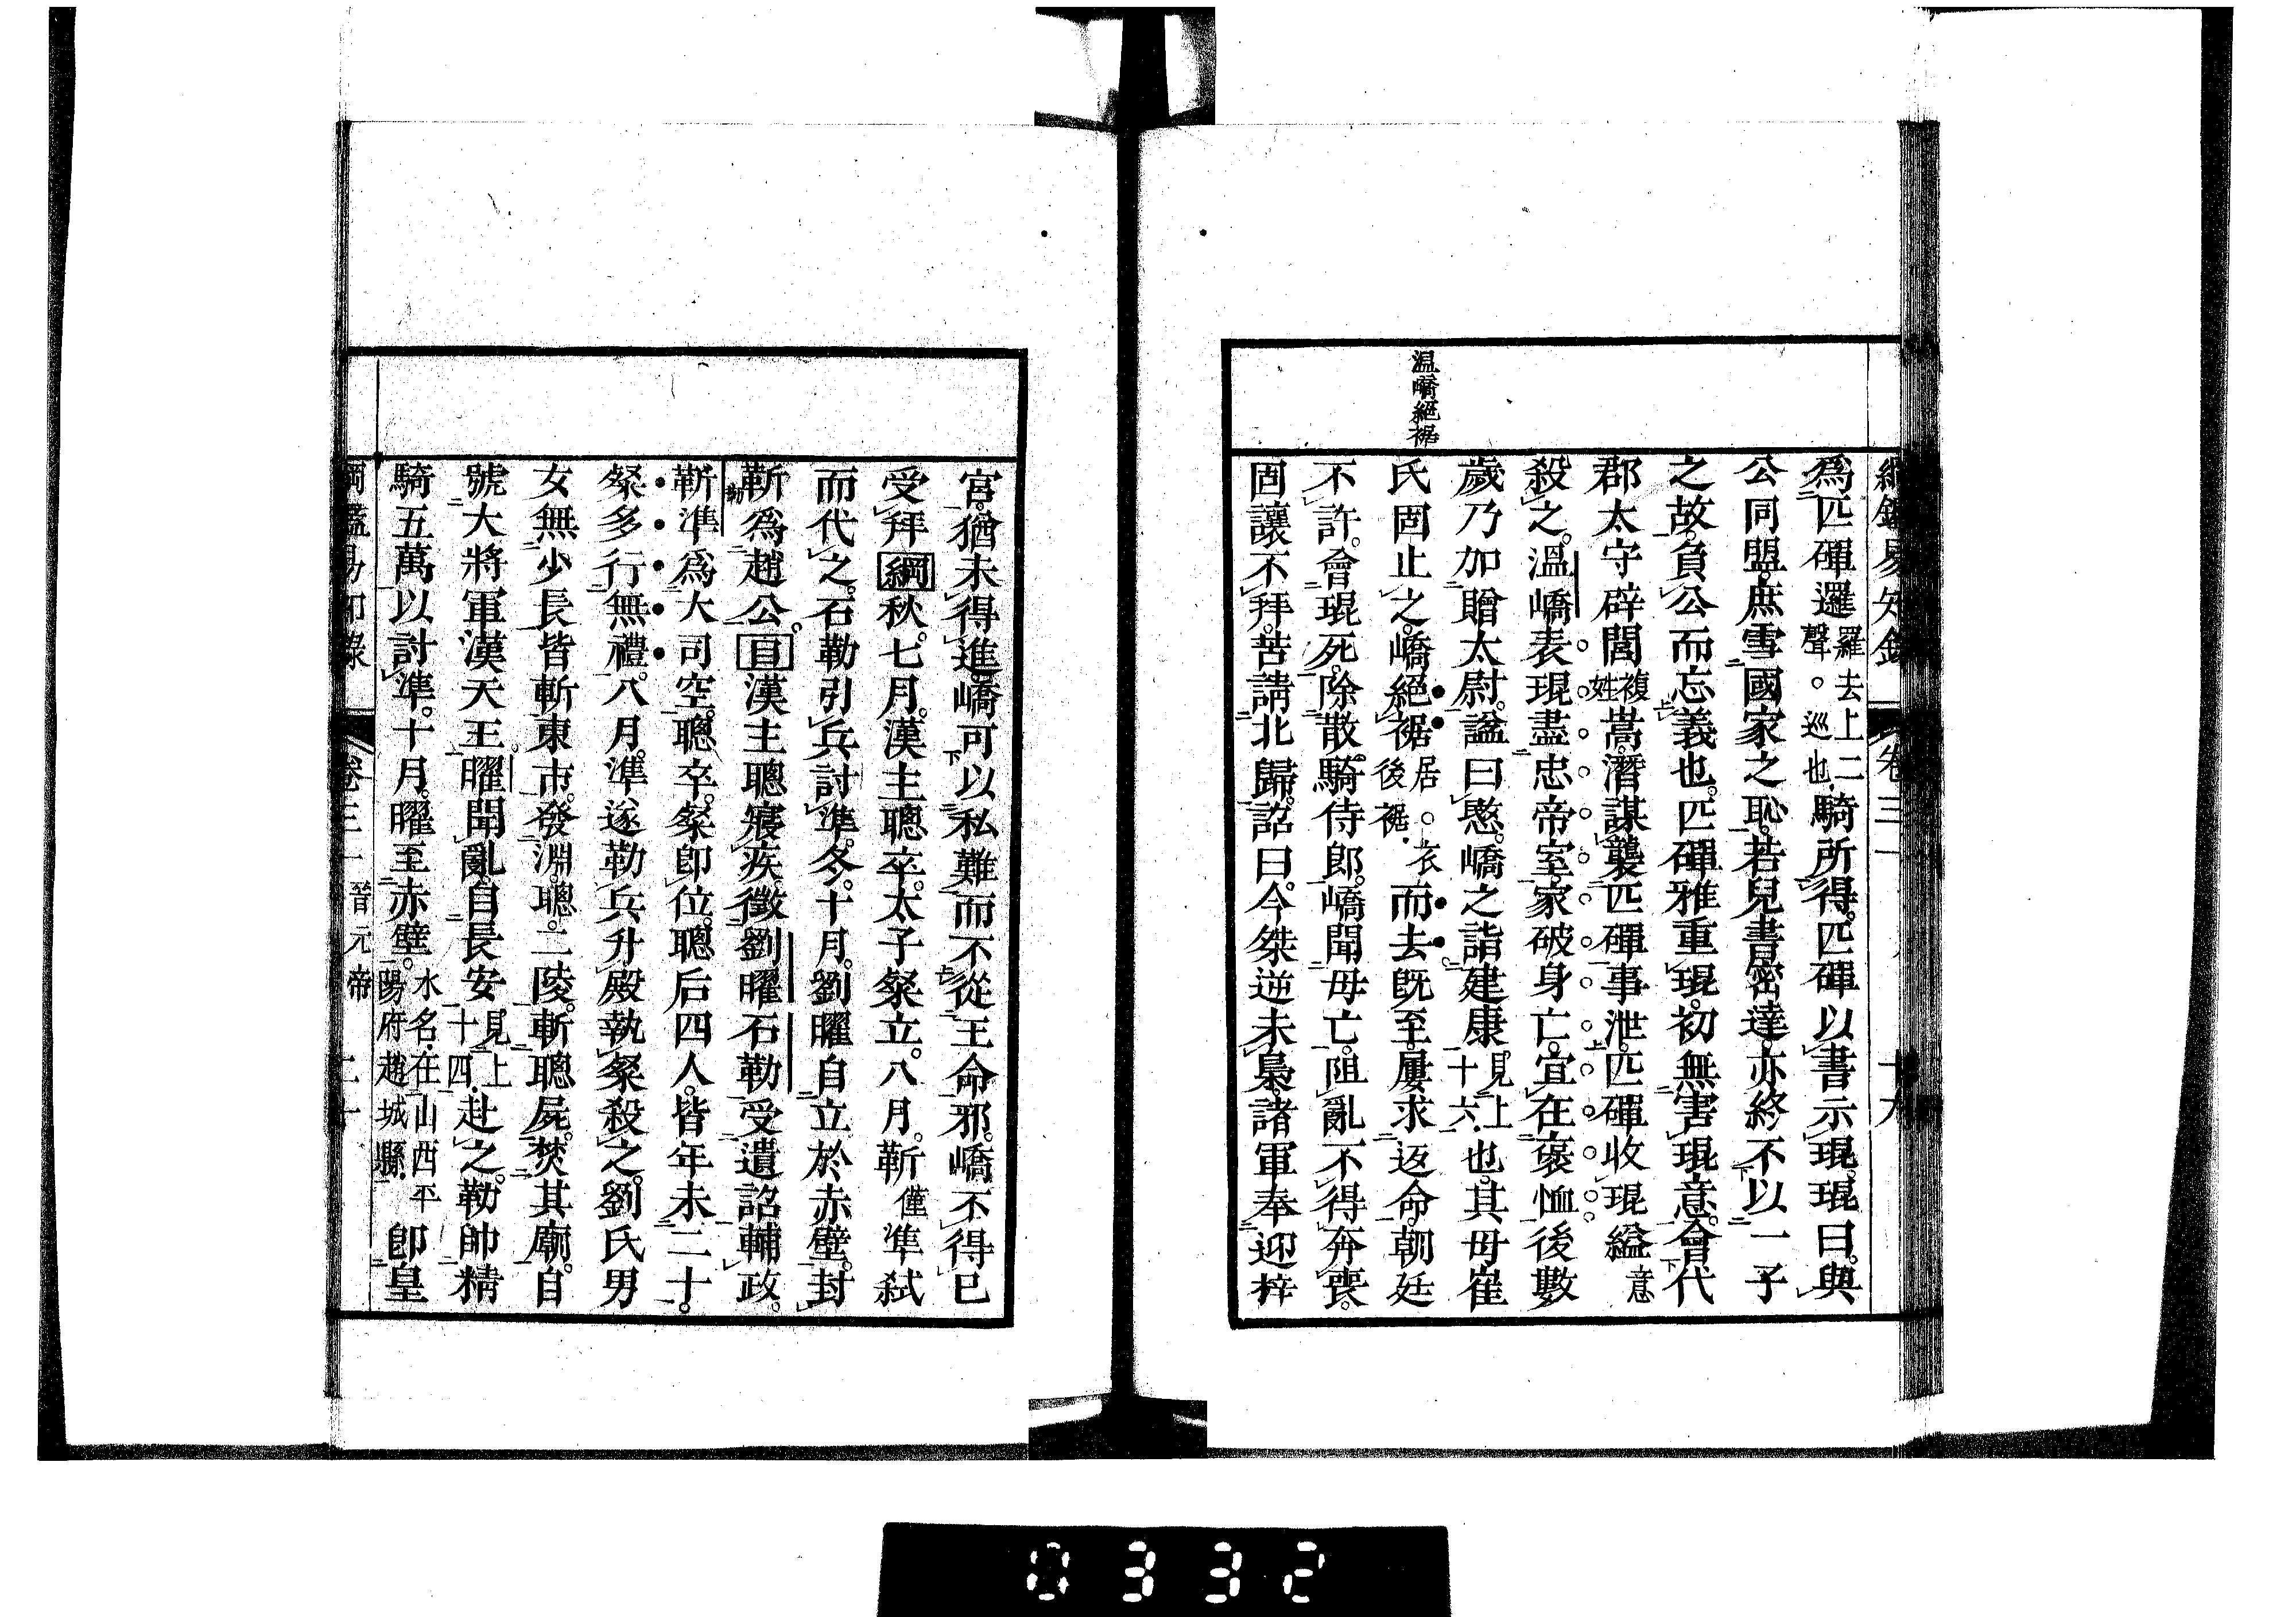 綱鑑易知錄 卷三一 十九
溫嶠絕裾
爲匹磾邏羅去聲。巡上二也騎所得。匹磾以書示琨。琨曰。與
公同盟。庶雪國家之恥。若兒書密達。亦終不以一子
之故。負公而忘義也。匹磾雅重琨。初無害琨意。會代
郡太守辟閭複姓嵩。潛謀襲匹磾。事泄。匹磾收琨縊意
殺之。溫嶠表琨盡忠帝室。家破身亡。宜在褒恤。後數
歲。乃加贈太尉。諡曰愍。嶠之詣建康見上十六也。其母崔
氏固止之。嶠絕裾居。衣後裾而去。旣至。屢求返命。朝廷
不許。會琨死。除散騎侍郎。嶠聞母亡。阻亂不得奔喪。
固讓不拜。苦請北歸。詔曰。今桀逆未梟。諸軍奉迎梓
宮。猶未得進。嶠可以私難而不從王命邪。嶠不得已
受拜綱秋。七月。漢主聰卒。太子粲立。八月。靳僅準弒
而代之。石勒引兵討準。冬。十月。劉曜自立於赤壁。封
靳勒爲趙公。目漢主聰寢疾。徵劉曜石勒受遺詔輔政。
靳準爲大司空。聰卒。粲卽位。聰后四人。皆年未二十。
粲多行無禮。八月。準遂勒兵升殿。執粲殺之。劉氏男
女無少長。皆斬東市。發淵。聰。二陵。斬聰屍。焚其廟。自
號大將軍漢天王。曜聞亂。自長安見上十四赴之。勒帥精
騎五萬以討準。十月。曜至赤壁。水名在山西平陽府趙城縣卽皇
綱鑑易知錄 卷三一 晉元帝 二十
0332